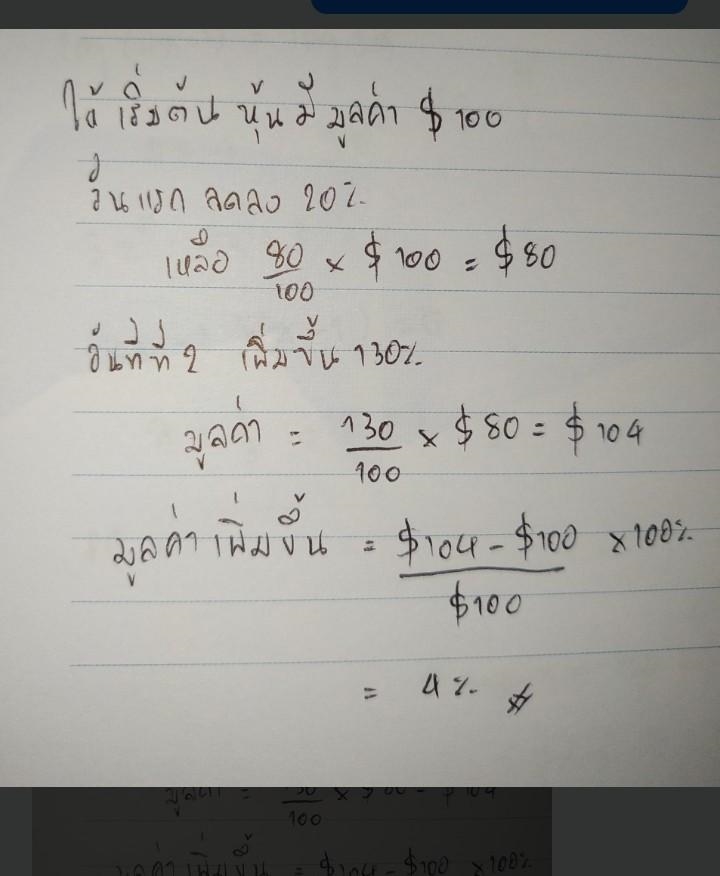 ให้ เริ่มต้น หุ้นมี มูลค่า $ 100
วันแรก ลดลง 20%
เหลือ 80/100 × $ 100 = $ 80
วันที่ที่ 2 เพิ่มขึ้น 130%
มูลค่า = 130/100 × $ 80 = $ 104
มูลค่าเพิ่มขึ้น = $104 - $100 / $100 × 100%
= 4%
มูลค่า = 130/100 × $ 80 = $ 104
มูลค่าเพิ่มขึ้น = $104 - $100 × 100%